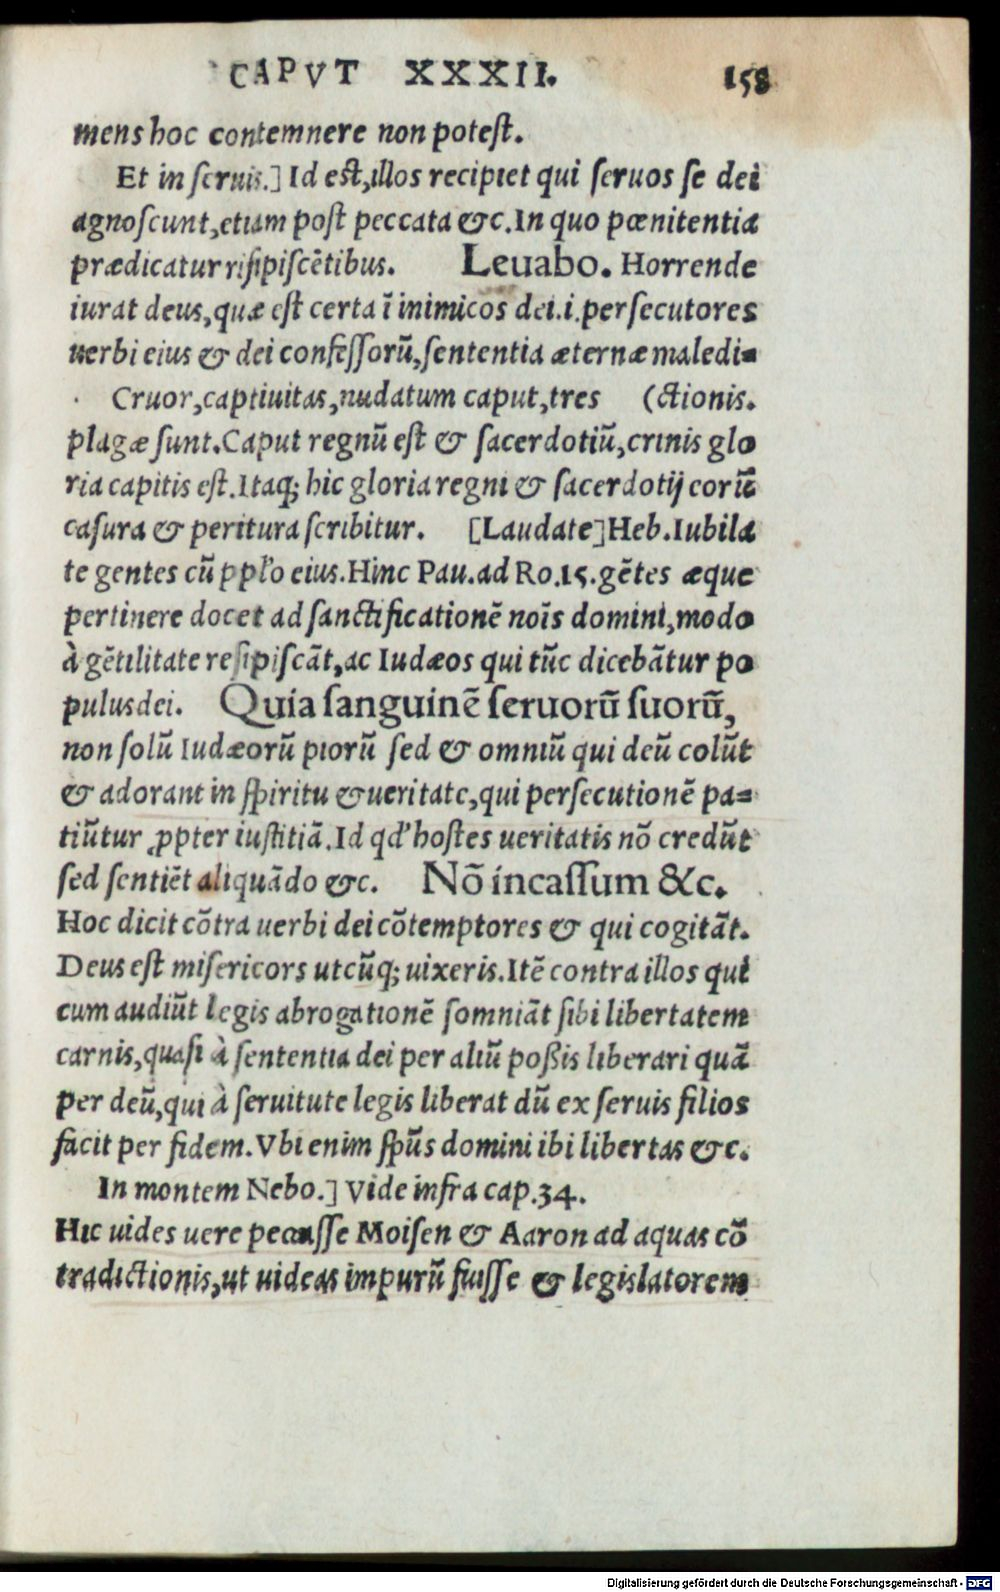 CAPVT XXXII. 158
mens hoc contemnere non potest.
Et in seruis.] Id est, illos recipiet qui seruos se dei
agnoscunt, etiam post peccata &c. In quo pœnitentia
prædicatur risipiscētibus. Leuabo. Horrende
iurat deus, quæ est certa ī inimicos dei .i. persecutores
uerbi eius & dei confessorū, sententia æternæ maledi=
Cruor, captiuitas, nudatum caput, tres (ctionis.
plagæ sunt. Caput regnū est & sacerdotiū, crinis glo
ria capitis est. Itaq; hic gloria regni & sacerdotij eorū
casura & peritura scribitur. [Laudate] Heb. Iubila
te gentes cū ppl'o eius. Hinc Pau. ad Ro. 15. gētes æque
pertinere docet ad sanctificationē noīs domini, modo
à gētilitate resipiscāt, ac Iudæos qui tūc dicebātur po
pulus dei. Quia sanguinē seruorū suorū,
non solū Iudæorū piorū sed & omniū qui deū colūt
& adorant in spiritu & ueritate, qui persecutionē pa=
tiūtur ꝓpter iustitiā. Id qd' hostes ueritatis nō credūt
sed sentiēt aliquādo &c. Nō incassum &c.
Hoc dicit cōtra uerbi dei cōtemptores & qui cogitāt.
Deus est misericors utcūq; uixeris. Itē contra illos qui
cum audiūt legis abrogationē somniāt sibi libertatem
carnis, quasi à sententia dei per aliū poßis liberari quā
per deū, qui à seruitute legis liberat dū ex seruis filios
facit per fidem. Vbi enim spūs domini ibi libertas &c.
In montem Nebo.] Vide infra cap. 34.
Hic uides uere pecasse Moisen & Aaron ad aquas cō
tradictionis, ut uideas impurū fuisse & legislatorem
Digitalisierung gefördert durch die Deutsche Forschungsgemeinschaft - DFG